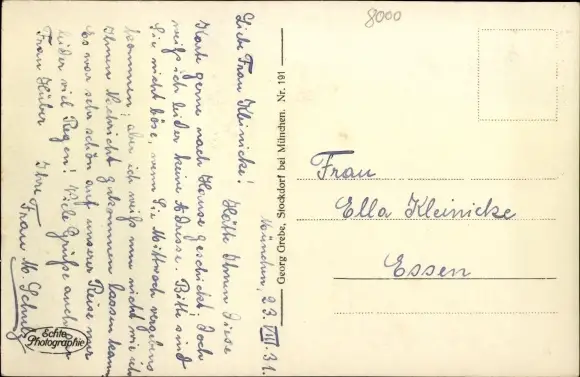 8000
München, 23. VIII. 31.
Liebe Frau Kleinicke!
Hätte Ihnen diese
Karte gerne nach Hause geschickt, doch
weiß ich leider keine Adresse. Bitte sind
Sie nicht böse, wenn Sie Mittwoch vergebens
kommen, aber ich weiß nun nicht wie ich
Ihnen Nachricht zukommen lassen kann.
Es war sehr schön auf unserer Reise nur
leider viel Regen! Viele Grüße auch an
Frau Hüber Ihre Frau M. Schulz
Echte
Photographie
Georg Grebe, Stockdorf bei München. Nr. 191
Frau
Ella Kleinicke
Essen